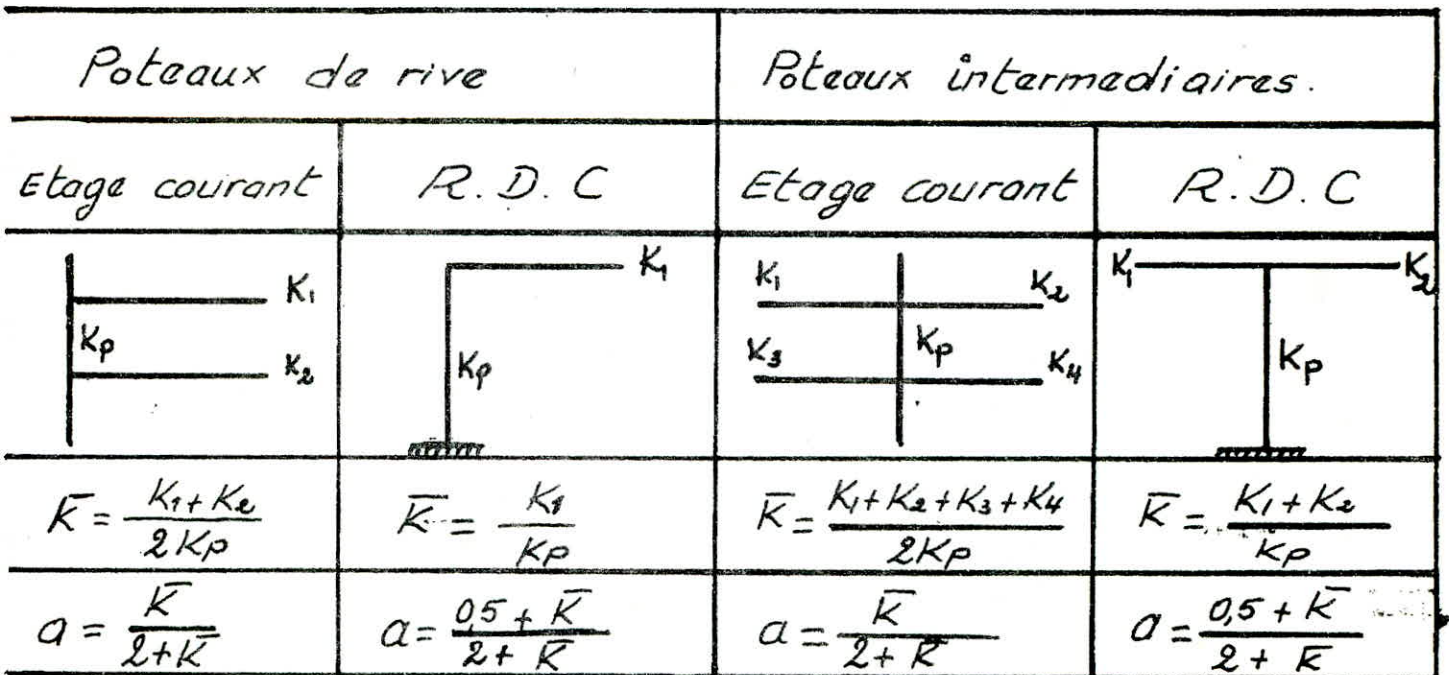 Poteaux de rive
Poteaux intermediaires.
Etage courant
R.D.C
Etage courant
R.D.C
K₁
Kp
K₂
K₁
Kp
K₁
K₂
Kp
K₃
K₄
K₁
K₂
Kp
K̄ = (K₁+K₂)/(2Kp)
K̄ = K₁/Kp
K̄ = (K₁+K₂+K₃+K₄)/(2Kp)
K̄ = (K₁+K₂)/Kp
a = K̄/(2+K̄)
a = (0,5+K̄)/(2+K̄)
a = K̄/(2+K̄)
a = (0,5+K̄)/(2+K̄)